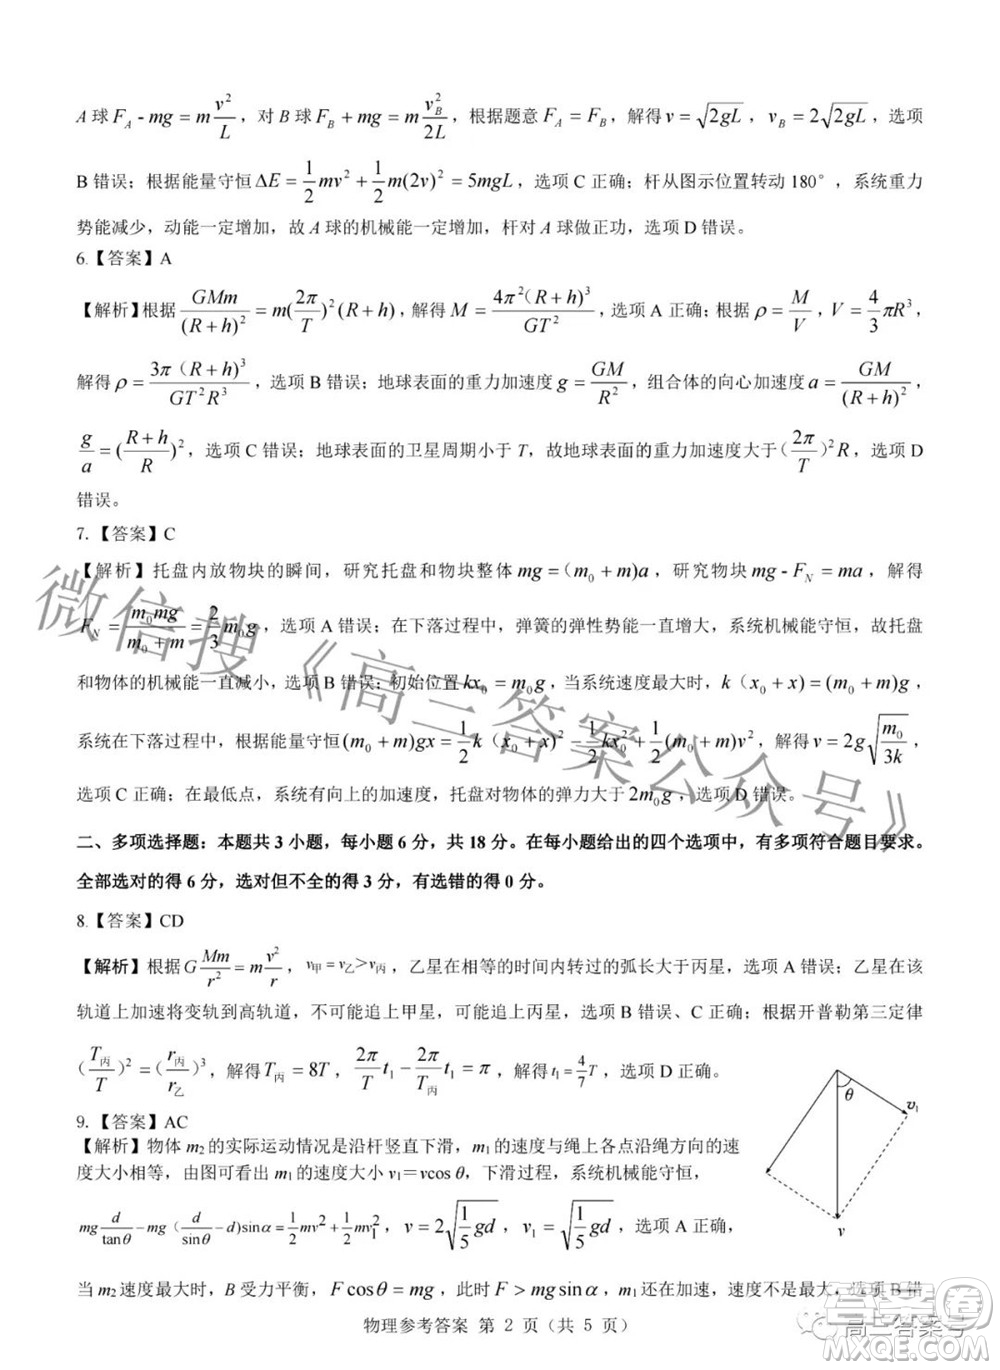 A 球 F_A - mg = m v²/L，对 B 球 F_B + mg = m v_B²/2L，根据题意 F_A = F_B，解得 v = √(2gL)，v_B = 2√(2gL)，选项
B 错误；根据能量守恒 ΔE = 1/2 mv² + 1/2 m(2v)² = 5mgL，选项 C 正确；杆从图示位置转动 180°，系统重力
势能减少，动能一定增加，故 A 球的机械能一定增加，杆对 A 球做正功，选项 D 错误。
6.【答案】A
【解析】根据 GMm/(R+h)² = m(2π/T)²(R+h)，解得 M = 4π²(R+h)³/GT²，选项 A 正确；根据 ρ = M/V，V = 4/3 πR³，
解得 ρ = 3π(R+h)³/GT²R³，选项 B 错误；地球表面的重力加速度 g = GM/R²，组合体的向心加速度 a = GM/(R+h)²，
g/a = (R+h/R)²，选项 C 错误；地球表面的卫星周期小于 T，故地球表面的重力加速度大于（2π/T）²R，选项 D
错误。
7.【答案】C
【解析】托盘内放物块的瞬间，研究托盘和物块整体 mg =（m₀ + m)a，研究物块 mg - F_N = ma，解得
F_N = m₀mg/(m₀ + m) = 2/3 m₀g，选项 A 错误；在下落过程中，弹簧的弹性势能一直增大，系统机械能守恒，故托盘
和物体的机械能一直减小，选项 B 错误；初始位置 kx₀ = m₀g，当系统速度最大时，k（x₀ + x) = (m₀ + m)g，
系统在下落过程中，根据能量守恒 (m₀ + m)gx = 1/2 k（x₀ + x)² - 1/2 kx₀² + 1/2 (m₀ + m)v²，解得 v = 2g√(m₀/3k)，
选项 C 正确；在最低点，系统有向上的加速度，托盘对物体的弹力大于 2m₀g，选项 D 错误。
二、多项选择题：本题共 3 小题，每小题 6 分，共 18 分。在每小题给出的四个选项中，有多项符合题目要求。
全部选对的得 6 分，选对但不全的得 3 分，有选错的得 0 分。
8.【答案】CD
【解析】根据 G Mm/r² = m v²/r，v甲 = v乙 > v丙，乙星在相等的时间内转过的弧长大于丙星，选项 A 错误；乙星在该
轨道上加速将变轨到高轨道，不可能追上甲星，可能追上丙星，选项 B 错误、C 正确；根据开普勒第三定律
（T丙/T)² = (r丙/r乙)³，解得 T丙 = 8T，2π/T t₁ - 2π/T丙 t₁ = π，解得 t₁ = 4/7 T，选项 D 正确。
9.【答案】AC
【解析】物体 m₂ 的实际运动情况是沿杆竖直下滑，m₁ 的速度与绳上各点沿绳方向的速
度大小相等，由图可看出 m₁ 的速度大小 v₁＝vcos θ，下滑过程，系统机械能守恒，
mg d/tanθ - mg（d/sinθ - d)sinα = 1/2 mv² + 1/2 mv₁²，v = 2√(1/5 gd)，v₁ = √(1/5 gd)，选项 A 正确，
当 m₂ 速度最大时，B 受力平衡，F cosθ = mg，此时 F > mg sinα，m₁ 还在加速，速度不是最大，选项 B 错
θ
v₁
v
物理参考答案 第 2 页（共 5 页）
微信搜《高三答案公众号》
高三答案号
答案圈